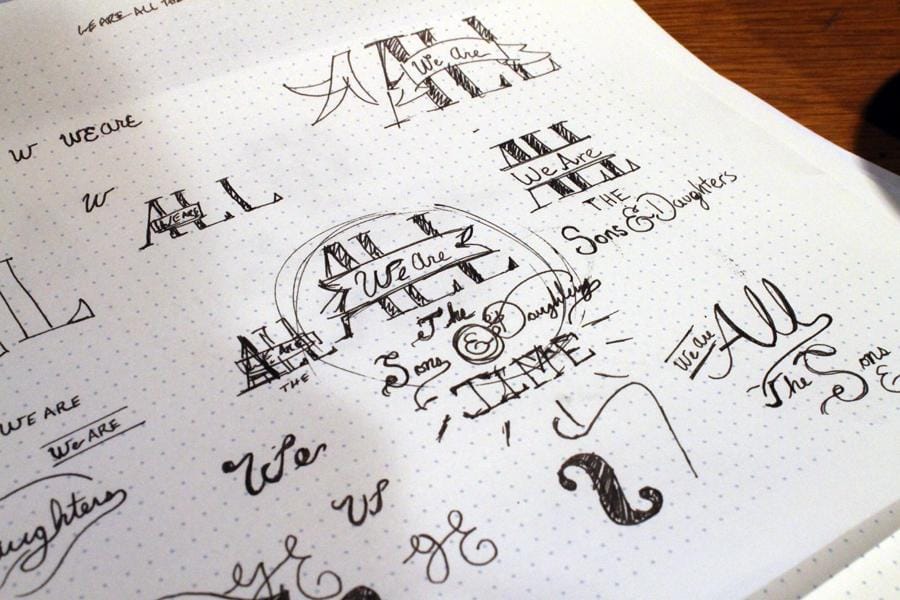 WE ARE ALL THE
ALL
We Are
W WE ARE
W
ALL
WE ARE
ALL
We Are
THE
Sons & Daughters
ALL
We Are
The
Sons & Daughters
TIME
ALL
WE ARE
THE
We are
All
The Sons
&
L
WE ARE
We ARE
We